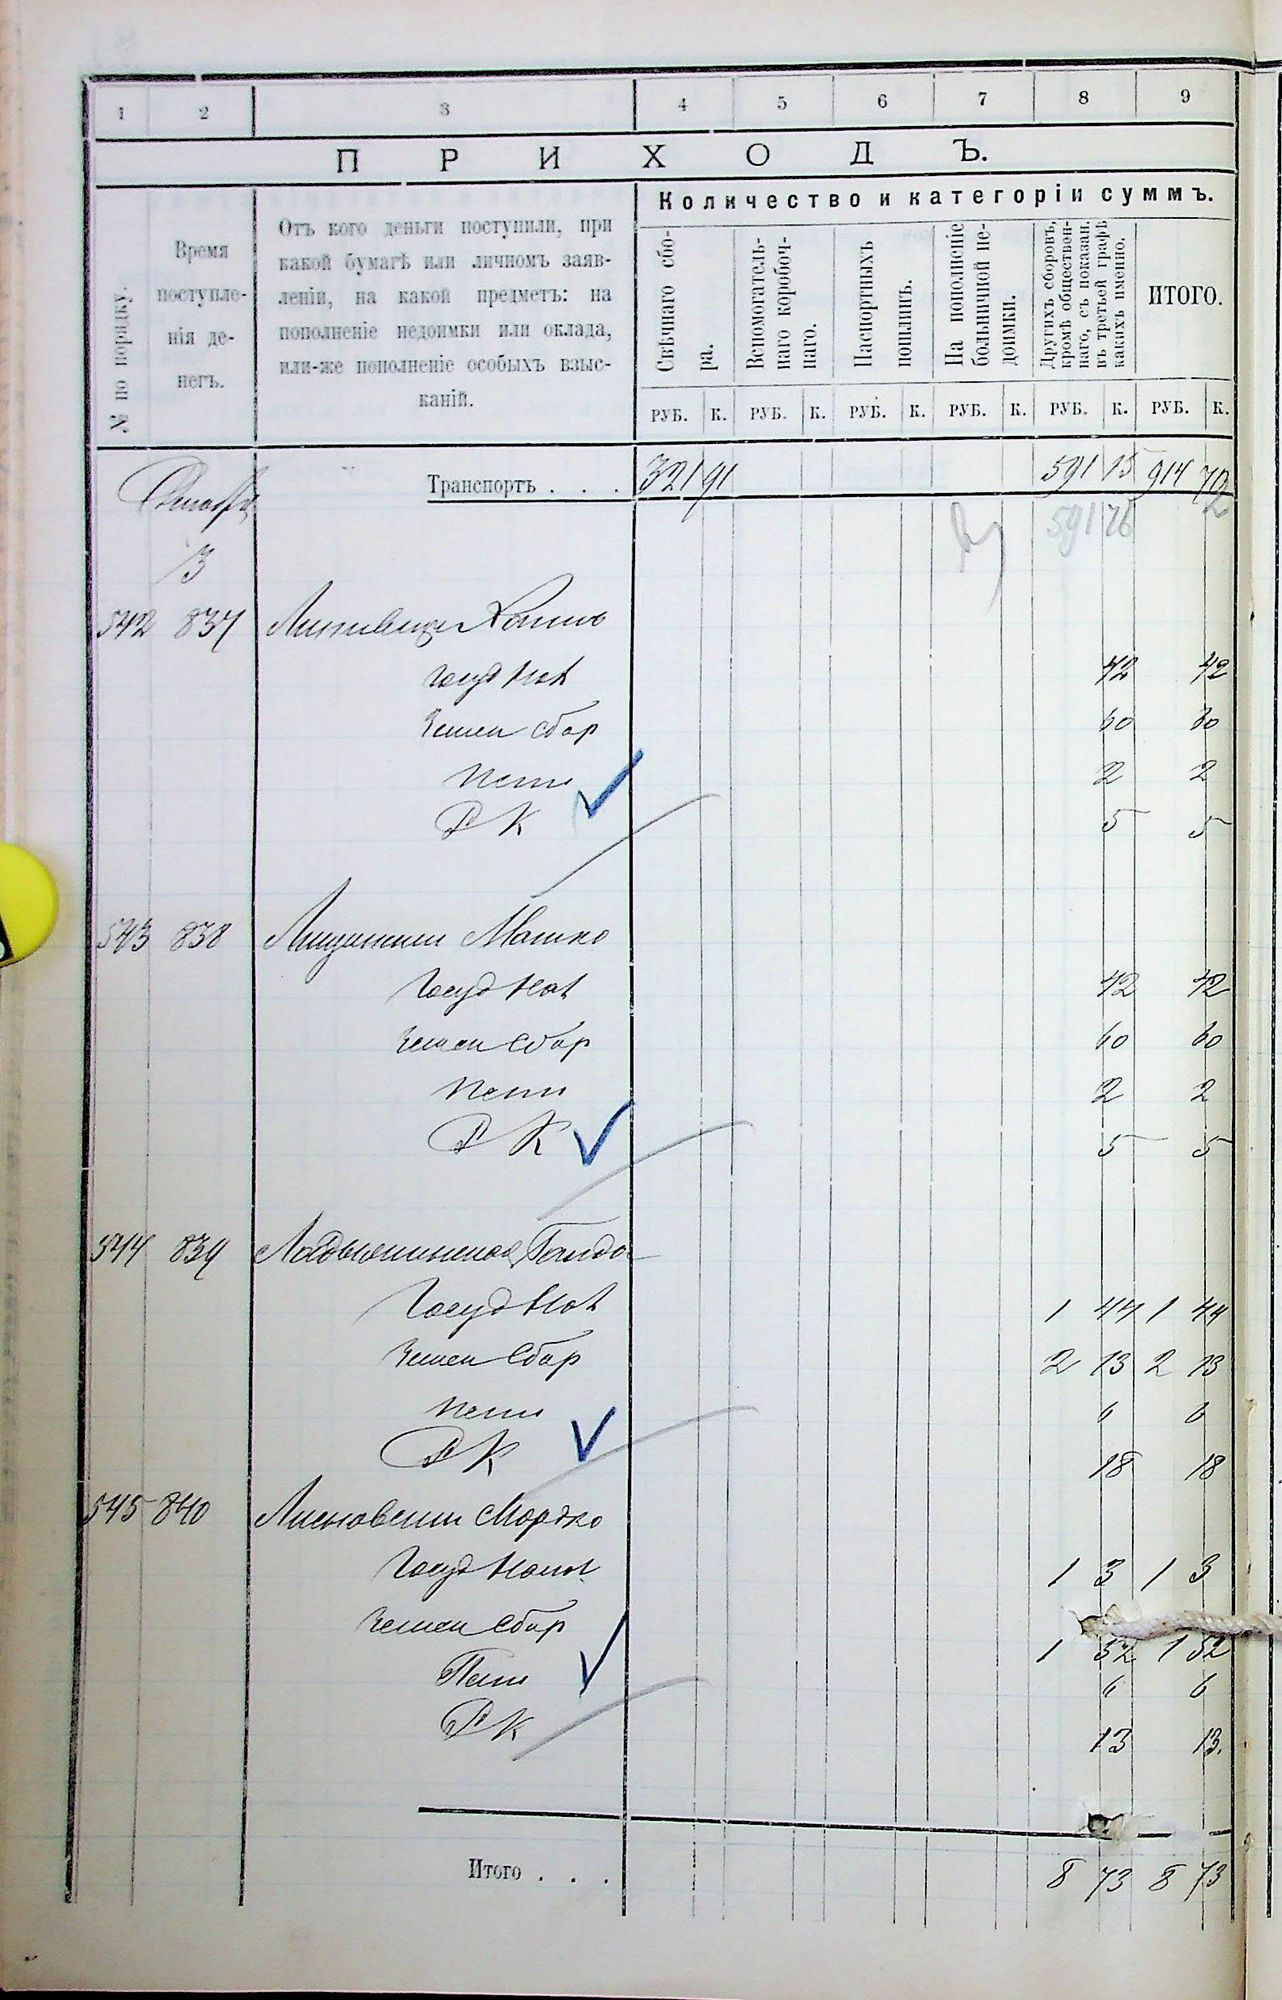 1 2 3 4 5 6 7 8 9
ПРИХОДЪ.
№ по порядку.
Время поступле-
нія де-
негъ.
Отъ кого деньги поступили, при
какой бумагѣ или личномъ заяв-
леніи, на какой предметъ: на
пополненіе недоимки или оклада,
или-же пополненіе особыхъ взыс-
каній.
Количество и категоріи суммъ.
Свѣчнаго сбо-
ра.
Вспомогатель-
наго коробоч-
наго.
Паспортныхъ
пошлинъ.
На пополненіе
больничной не-
доимки.
Другихъ сборовъ,
кромѣ обществен-
наго, съ показан.
въ третьей графѣ
какихъ именно.
ИТОГО.
РУБ. К. РУБ. К. РУБ. К. РУБ. К. РУБ. К. РУБ. К.
Транспортъ . . . 321 91 591 15 914 72
591 76
3
542 837
Госуд Нал 42 42
Земск сбор 60 60
Пени 2 2
Р К 5 5
543 838 Мошко
Госуд Нал 42 42
Земск сбор 60 60
Пени 2 2
Р К 5 5
544 839
Госуд Нал 1 44 1 44
Земск сбор 2 13 2 13
Пени 6 6
Р К 18 18
545 840 Мордко
Госуд Нал 1 3 1 3
Земск сбор 1 52 1 52
Пени 6 6
Р К 13 13.
Итого . . . 8 73 8 73